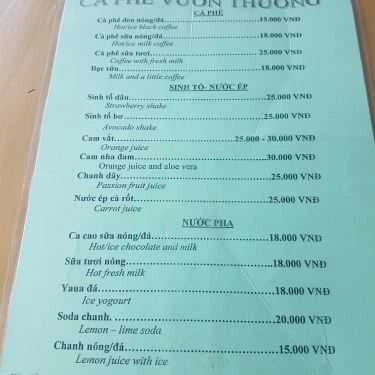 CÀ PHÊ VƯỜN THƯƠNG
CÀ PHÊ
Cà phê đen nóng/đá............................15.000 VNĐ
Hot/ice black coffee
Cà phê sữa nóng/đá............................18.000 VNĐ
Hot/ice milk coffee
Cà phê sữa tươi............................25.000 VNĐ
Coffee with fresh milk
Bạc sữu............................18.000 VNĐ
Milk and a little coffee
SINH TỐ- NƯỚC ÉP
Sinh tố dâu............................25.000 VNĐ
Strawberry shake
Sinh tố bơ............................25.000 VNĐ
Avocado shake
Cam vắt............................25.000 - 30.000 VNĐ
Orange juice
Cam nha đam............................30.000 VNĐ
Orange juice and aloe vera
Chanh dây............................25.000 VNĐ
Passion fruit juice
Nước ép cà rốt............................25.000 VNĐ
Carrot juice
NƯỚC PHA
Ca cao sữa nóng/đá............................18.000 VNĐ
Hot/ice chocolate and milk
Sữa tươi nóng............................18.000 VNĐ
Hot fresh milk
Yaua đá............................18.000 VNĐ
Ice yogourt
Soda chanh. ............................20.000 VNĐ
Lemon – lime soda
Chanh nóng/đá............................15.000 VNĐ
Lemon juice with ice